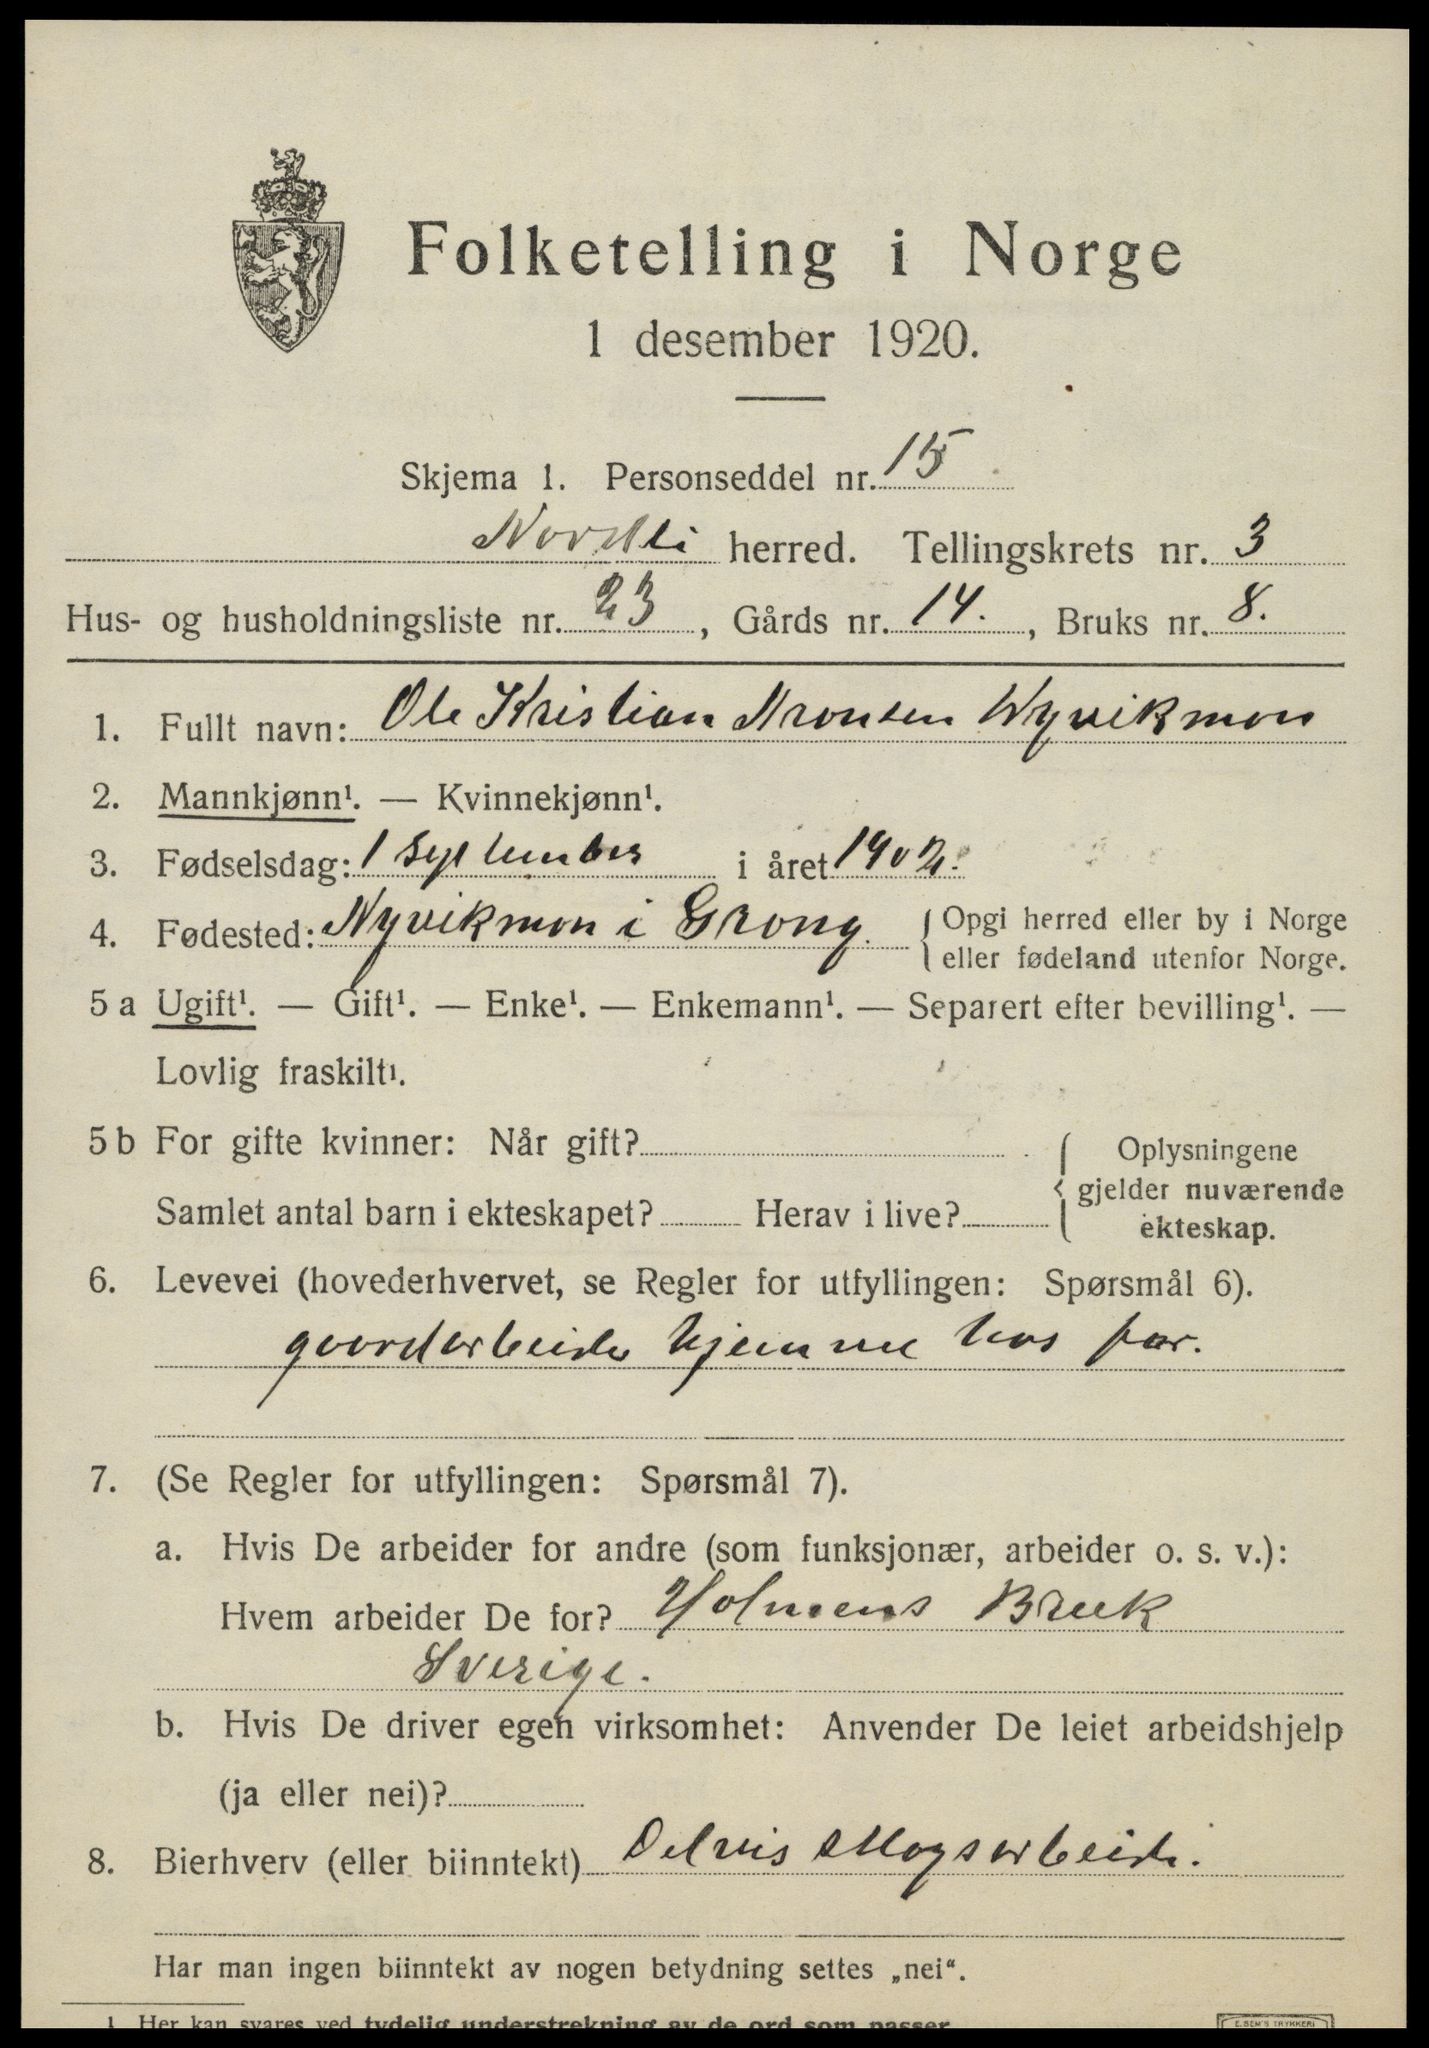 Folketelling i Norge
1 desember 1920.
Skjema 1. Personseddel nr. 15
Nordli herred. Tellingskrets nr. 3
Hus- og husholdningsliste nr. 23, Gårds nr. 14., Bruks nr. 8.
1. Fullt navn: Ole Kristian Aronsen Nyvikmon
2. Mannkjønn¹. — Kvinnekjønn¹.
3. Fødselsdag: 1 September i året 1902.
4. Fødested: Nyvikmon i Grong. { Opgi herred eller by i Norge
eller fødeland utenfor Norge.
5 a Ugift¹. — Gift¹. — Enke¹. — Enkemann¹. — Separert efter bevilling¹. —
Lovlig fraskilt¹.
5 b For gifte kvinner: Når gift?
Samlet antal barn i ekteskapet? Herav i live?
{ Oplysningene
gjelder nuværende
ekteskap.
6. Levevei (hovederhvervet, se Regler for utfyllingen: Spørsmål 6).
gaardarbeider hjemme hos far.
7. (Se Regler for utfyllingen: Spørsmål 7).
a. Hvis De arbeider for andre (som funksjonær, arbeider o. s. v.):
Hvem arbeider De for? Holmens Bruk
Sverige.
b. Hvis De driver egen virksomhet: Anvender De leiet arbeidshjelp
(ja eller nei)?
8. Bierhverv (eller biinntekt) Delvis skogsarbeide.
Har man ingen biinntekt av nogen betydning settes „nei“.
1 Her kan svares ved tydelig understrekning av de ord som passer
E. SEM'S TRYKKERI